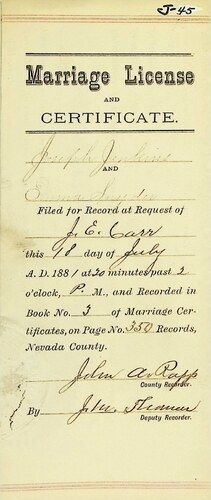 J-45
Marriage License
AND
CERTIFICATE.
Joseph Jenkins
AND
Emma
Filed for Record at Request of
J. E. Carr
this 18 day of July
A. D. 1881 at 20 minutes past 2
o'clock, P. M., and Recorded in
Book No. 3 of Marriage Cer-
tificates, on Page No. 350 Records,
Nevada County.
John A. Rapp
County Recorder.
By J. M. Thomas
Deputy Recorder.